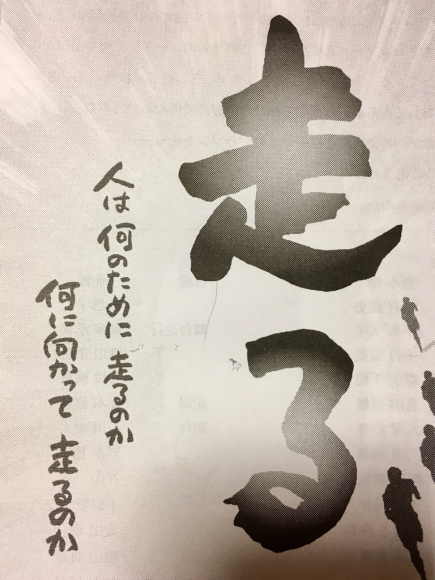 走る
人は 何のために 走るのか
何に向かって 走るのか